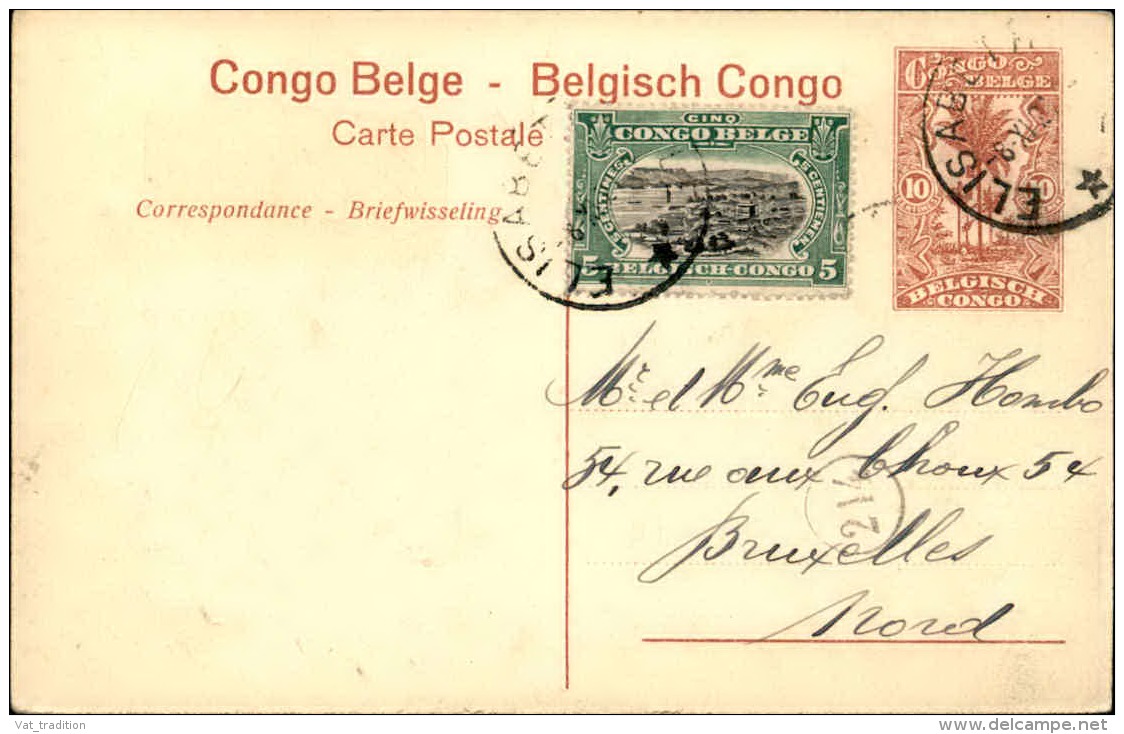 Congo Belge - Belgisch Congo
Carte Postale
Correspondance - Briefwisseling
CINQ
CONGO BELGE
5 CENTIMES
5 CENTIEMEN
5 BELGISCH-CONGO 5
CONGO
BELGE
10 10
BELGISCH
CONGO
ELISABE
ELISABE
Mr. et Mme Eug. Hombo
54, rue aux Choux 54
Bruxelles
Nord
214
Vat_tradition
delcampe.net